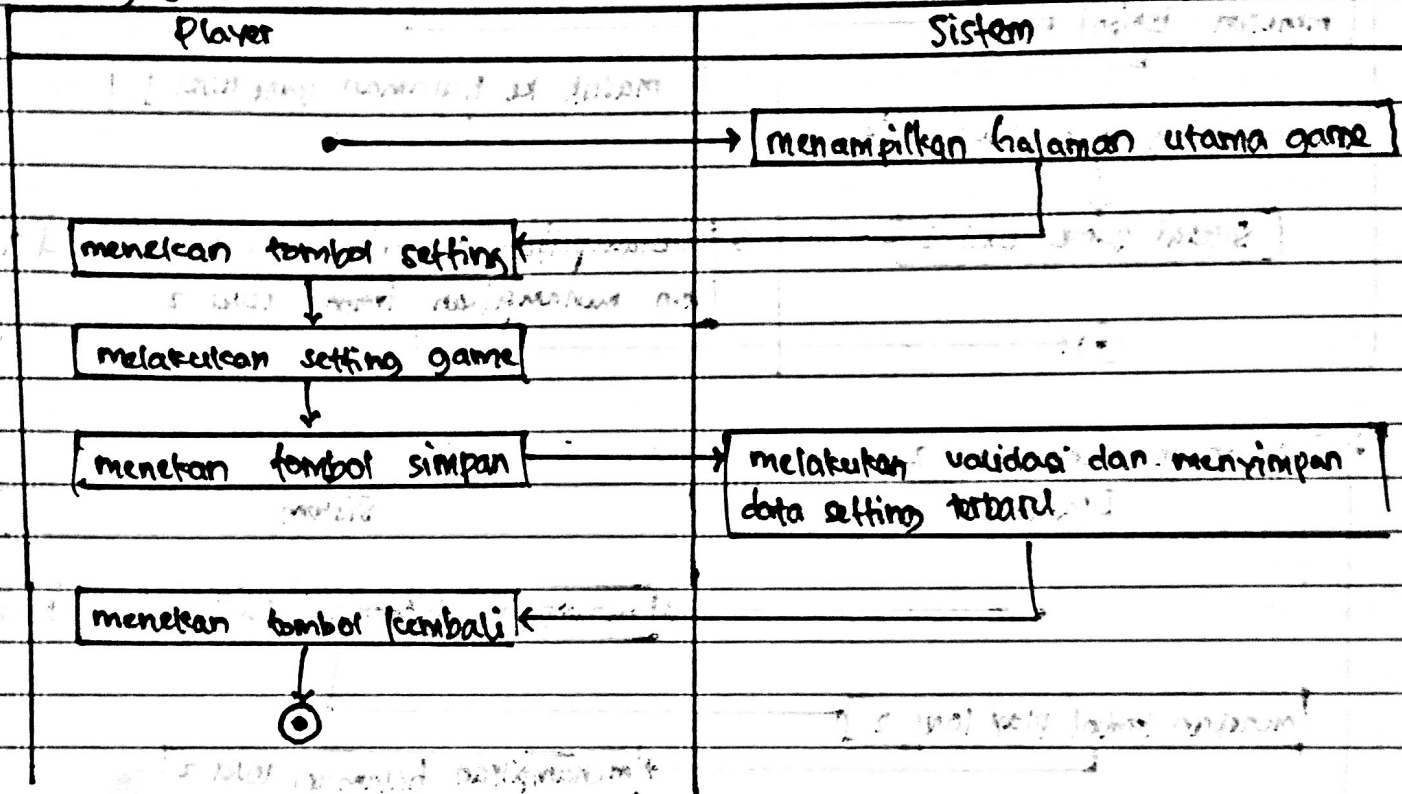 Player
Sistem
menampilkan halaman utama game
menekan tombol setting
melakukan setting game
menekan tombol simpan
melakukan validasi dan menyimpan
data setting terbaru
menekan tombol kembali